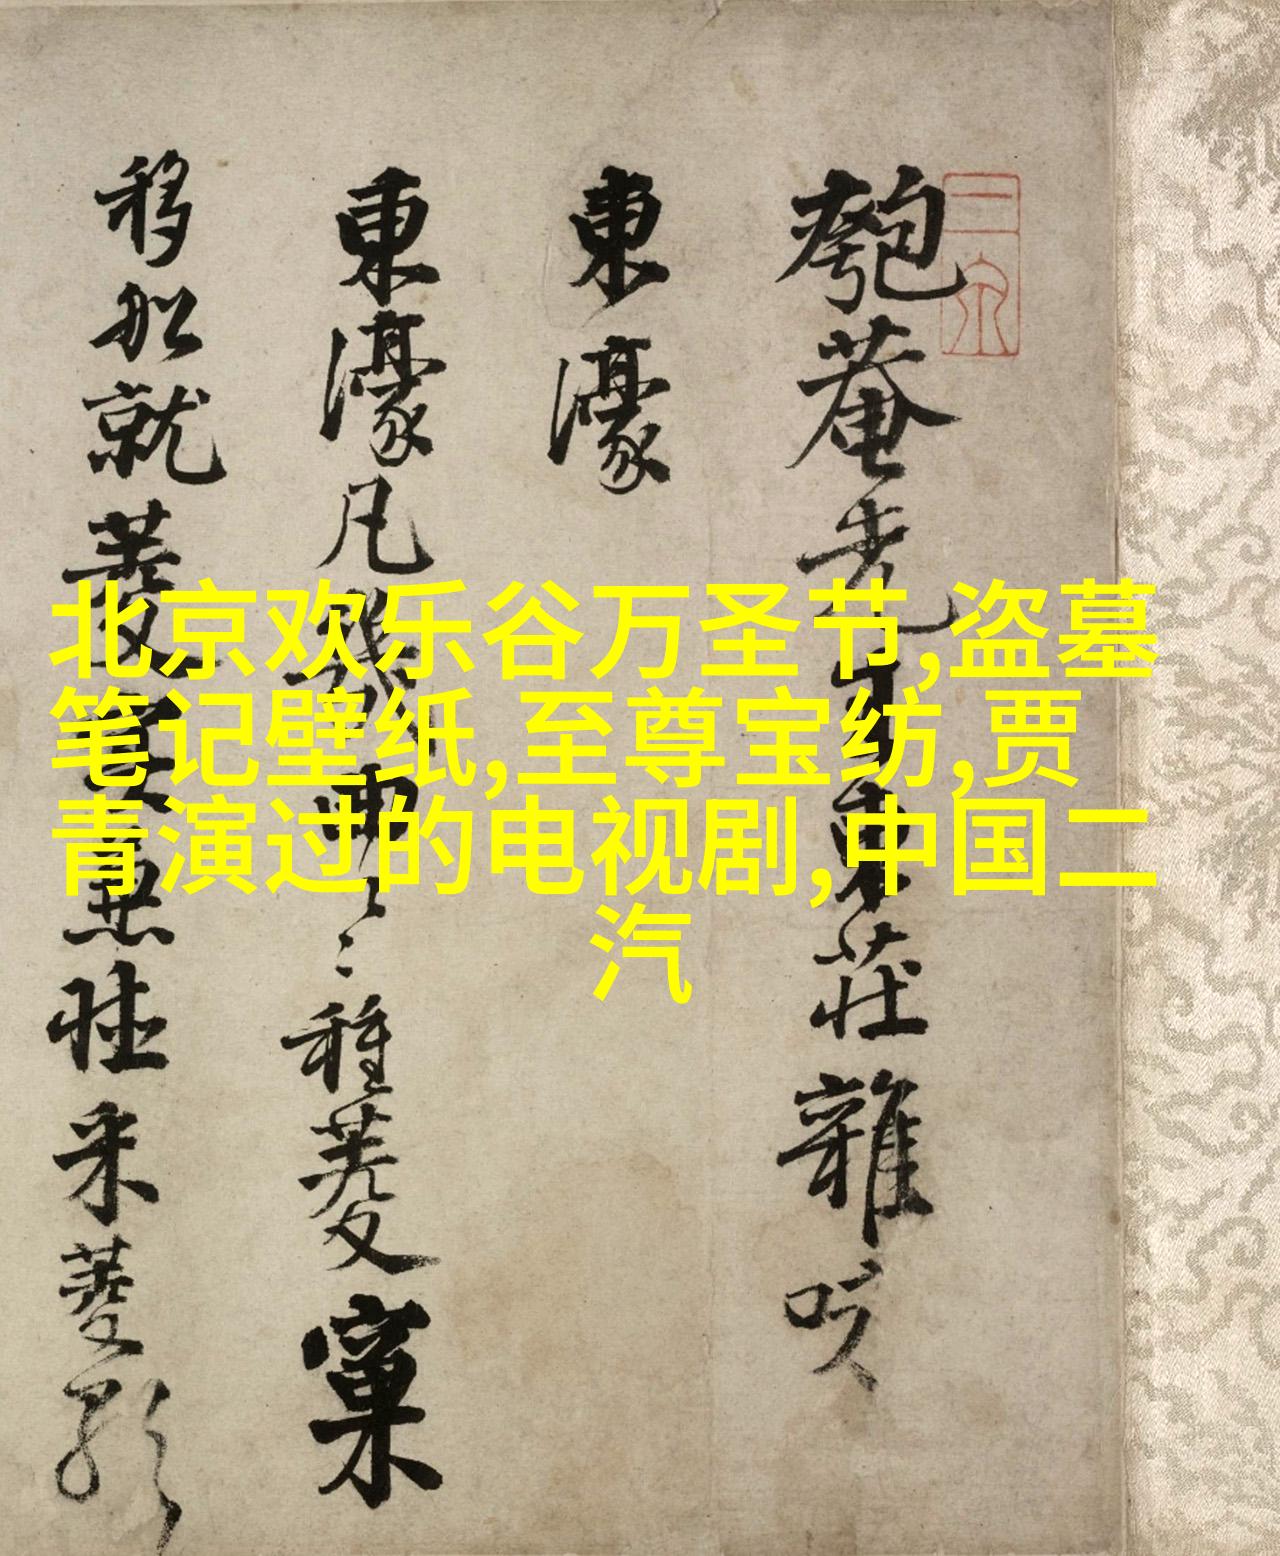 匏菴先生東莊雜咏
東濠
東濠凡種菱窠
移船就菱無采菱
北京欢乐谷万圣节,盗墓
笔记壁纸,至尊宝纺,贾
青演过的电视剧,中国二
汽